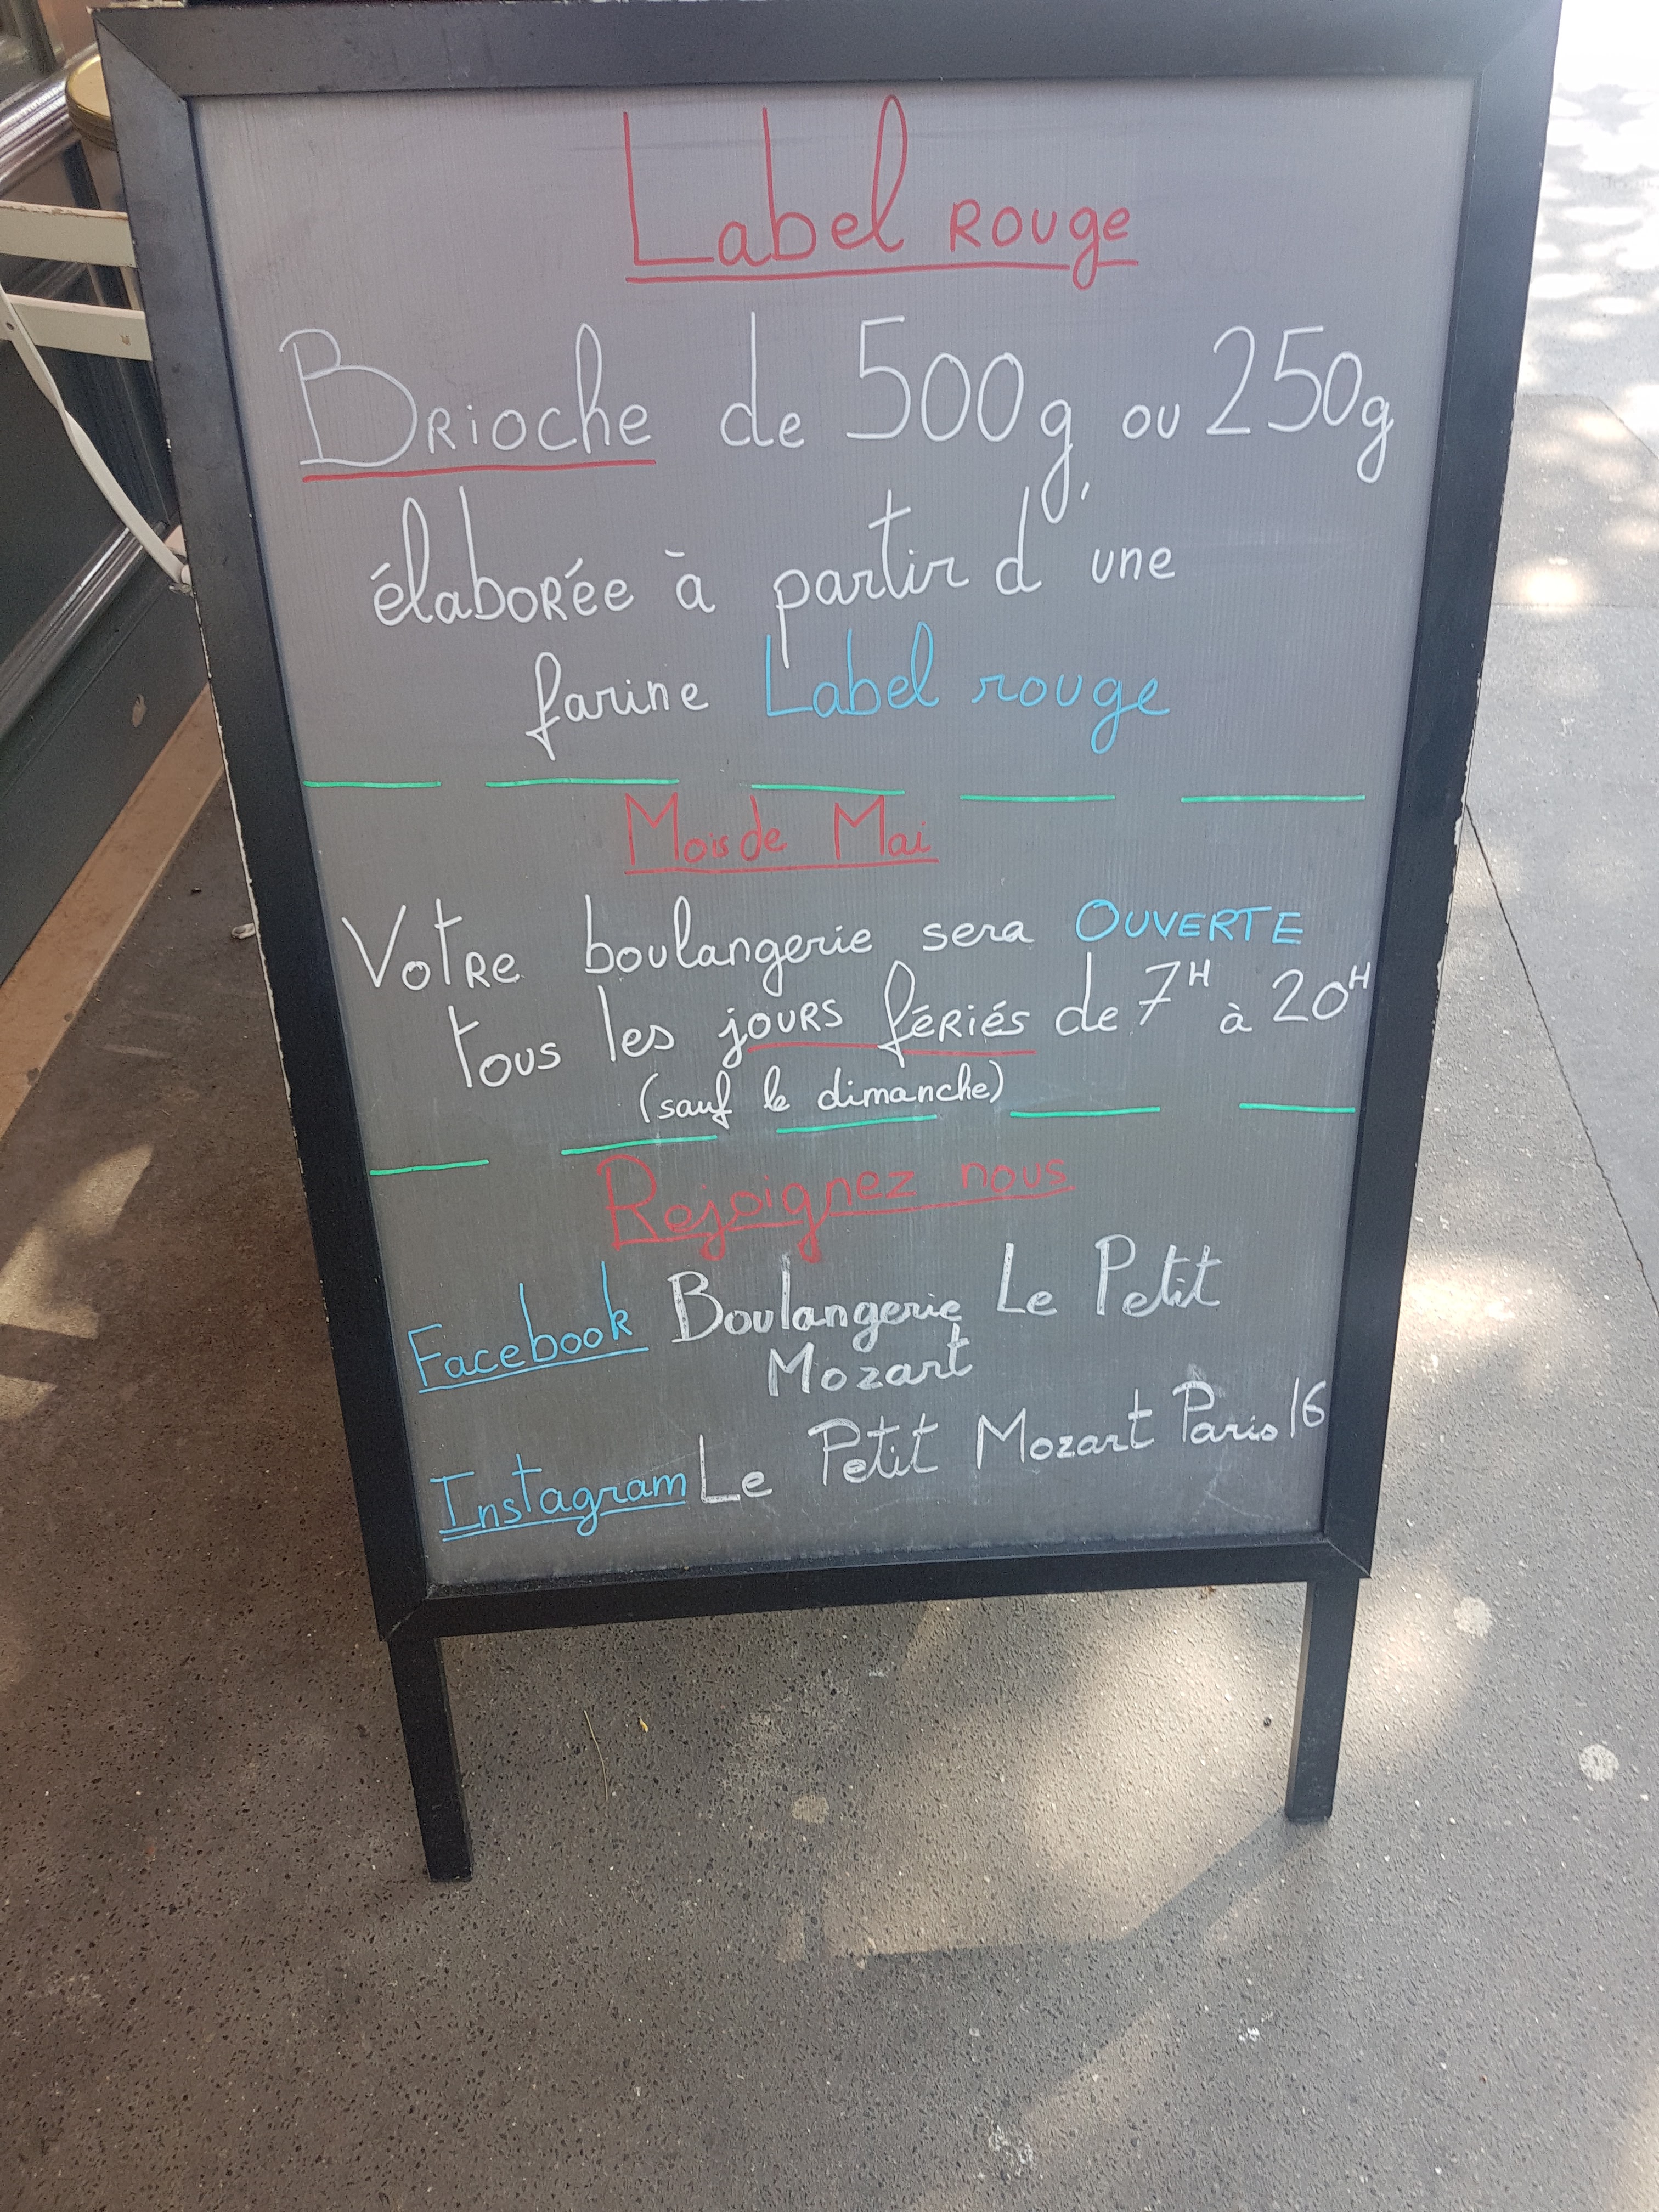 Label Rouge
Brioche de 500g ou 250g
élaborée à partir d'une
farine Label rouge
Mois de Mai
Votre boulangerie sera OUVERTE
tous les jours fériés de 7H à 20H
(sauf le dimanche)
Rejoignez nous
Facebook Boulangerie Le Petit
Mozart
Instagram Le Petit Mozart Paris 16